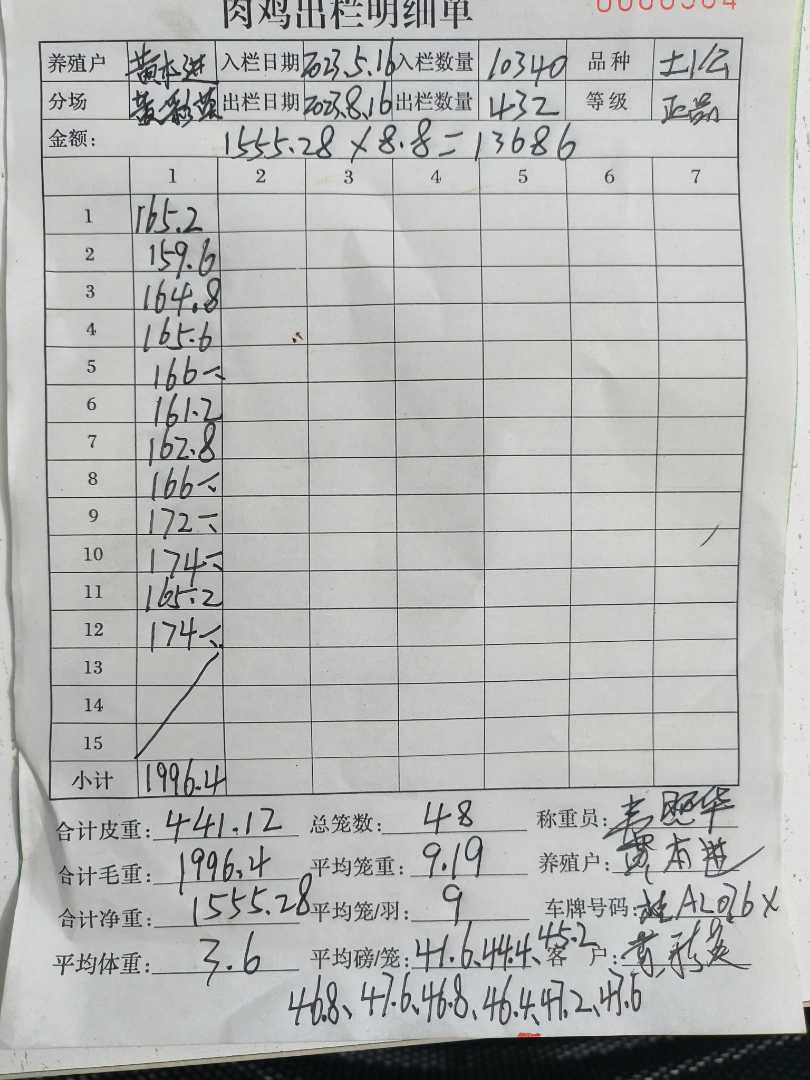 肉鸡出栏明细单
养殖户 黄本进 入栏日期 2023.5.16 入栏数量 10340 品种 土公
分场 出栏日期 2023.8.16 出栏数量 432 等级 正品
金额: 1555.28×8.8=13686
1 2 3 4 5 6 7
1 165.2
2 159.6
3 164.8
4 165.6
5 166-
6 161.2
7 162.8
8 166-
9 172-
10 174-
11 165.2
12 174-
13
14
15
小计 1996.4
合计皮重: 441.12 总笼数: 48 称重员:
合计毛重: 1996.4 平均笼重: 9.19 养殖户: 黄本进
合计净重: 1555.28 平均笼/羽: 9 车牌号码:
平均体重: 3.6 平均磅/笼: 41.6、44.4、45.2 客户:
46.8、47.6、46.8、46.4、47.2、47.6